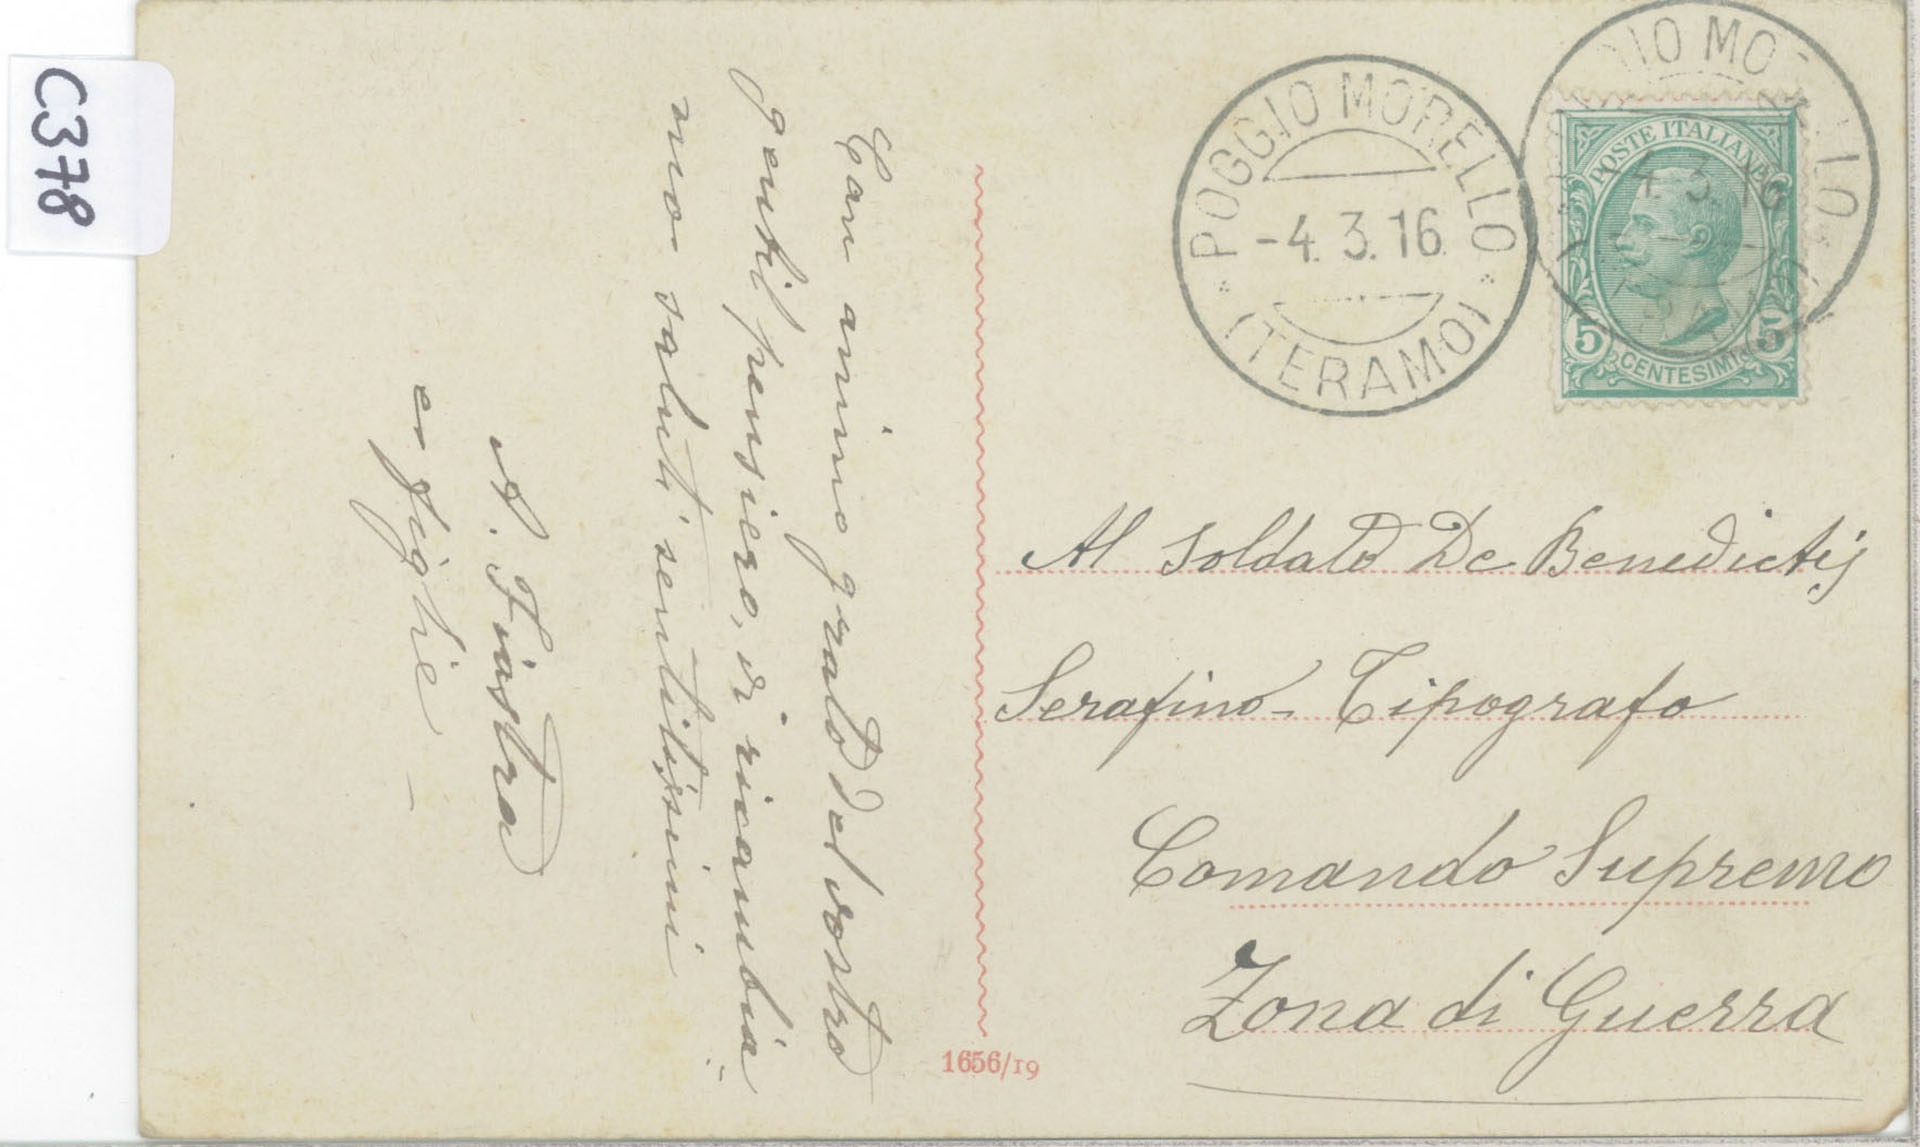 C378
Con animo grato del vostro
gentil pensiero, vi ricambia-
mo saluti sentitissimi
A. Fiastra
e figlie -
POGGIO MORELLO
-4.3.16
(TERAMO)
POGGIO MORELLO
4.3.16
POSTE ITALIANE
5 CENTESIMI 5
Al Soldato De Benedictis
Serafino - Tipografo
Comando Supremo
Zona di Guerra
1656/19